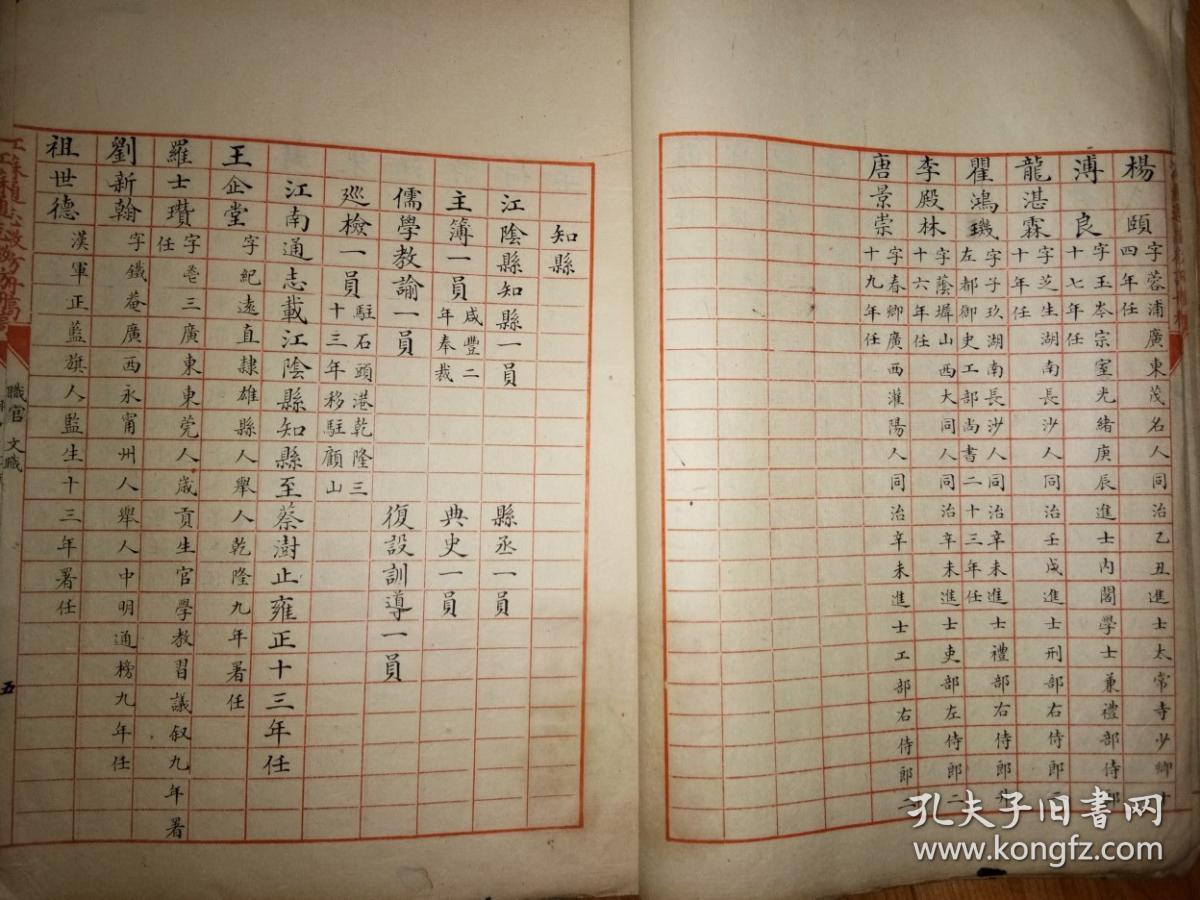 楊頤 字蓉浦廣東茂名人同治乙丑進士太常寺少卿十
四年任
溥良 字玉岑宗室光緒庚辰進士內閣學士兼禮部侍郎
十七年任
龍湛霖 字芝生湖南長沙人同治壬戌進士刑部右侍郎二
十年任
瞿鴻璣 字子玖湖南長沙人同治辛未進士禮部右侍郎升
左都御史工部尚書二十三年任
李殿林 字蔭墀山西大同人同治辛未進士吏部左侍郎二
十六年任
唐景崇 字春卿廣西灌陽人同治辛未進士工部右侍郎二
十九年任
知縣
江陰縣知縣一員 縣丞一員
主簿一員 咸豐二
年奉裁 典史一員
儒學教諭一員 復設訓導一員
巡檢一員 駐石頭港乾隆三
十三年移駐顧山
江南通志載江陰縣知縣至蔡澍止雍正十三年任
王企堂 字紀遠直隸雄縣人舉人乾隆九年署任
羅士瓚 字三廣東東莞人歲貢生官學教習議叙九年署
任
劉新翰 字鐵菴廣西永甯州人舉人中明通榜九年任
祖世德 漢軍正藍旗人監生十三年署任
職官 文職
五
孔夫子旧书网
www.kongfz.com